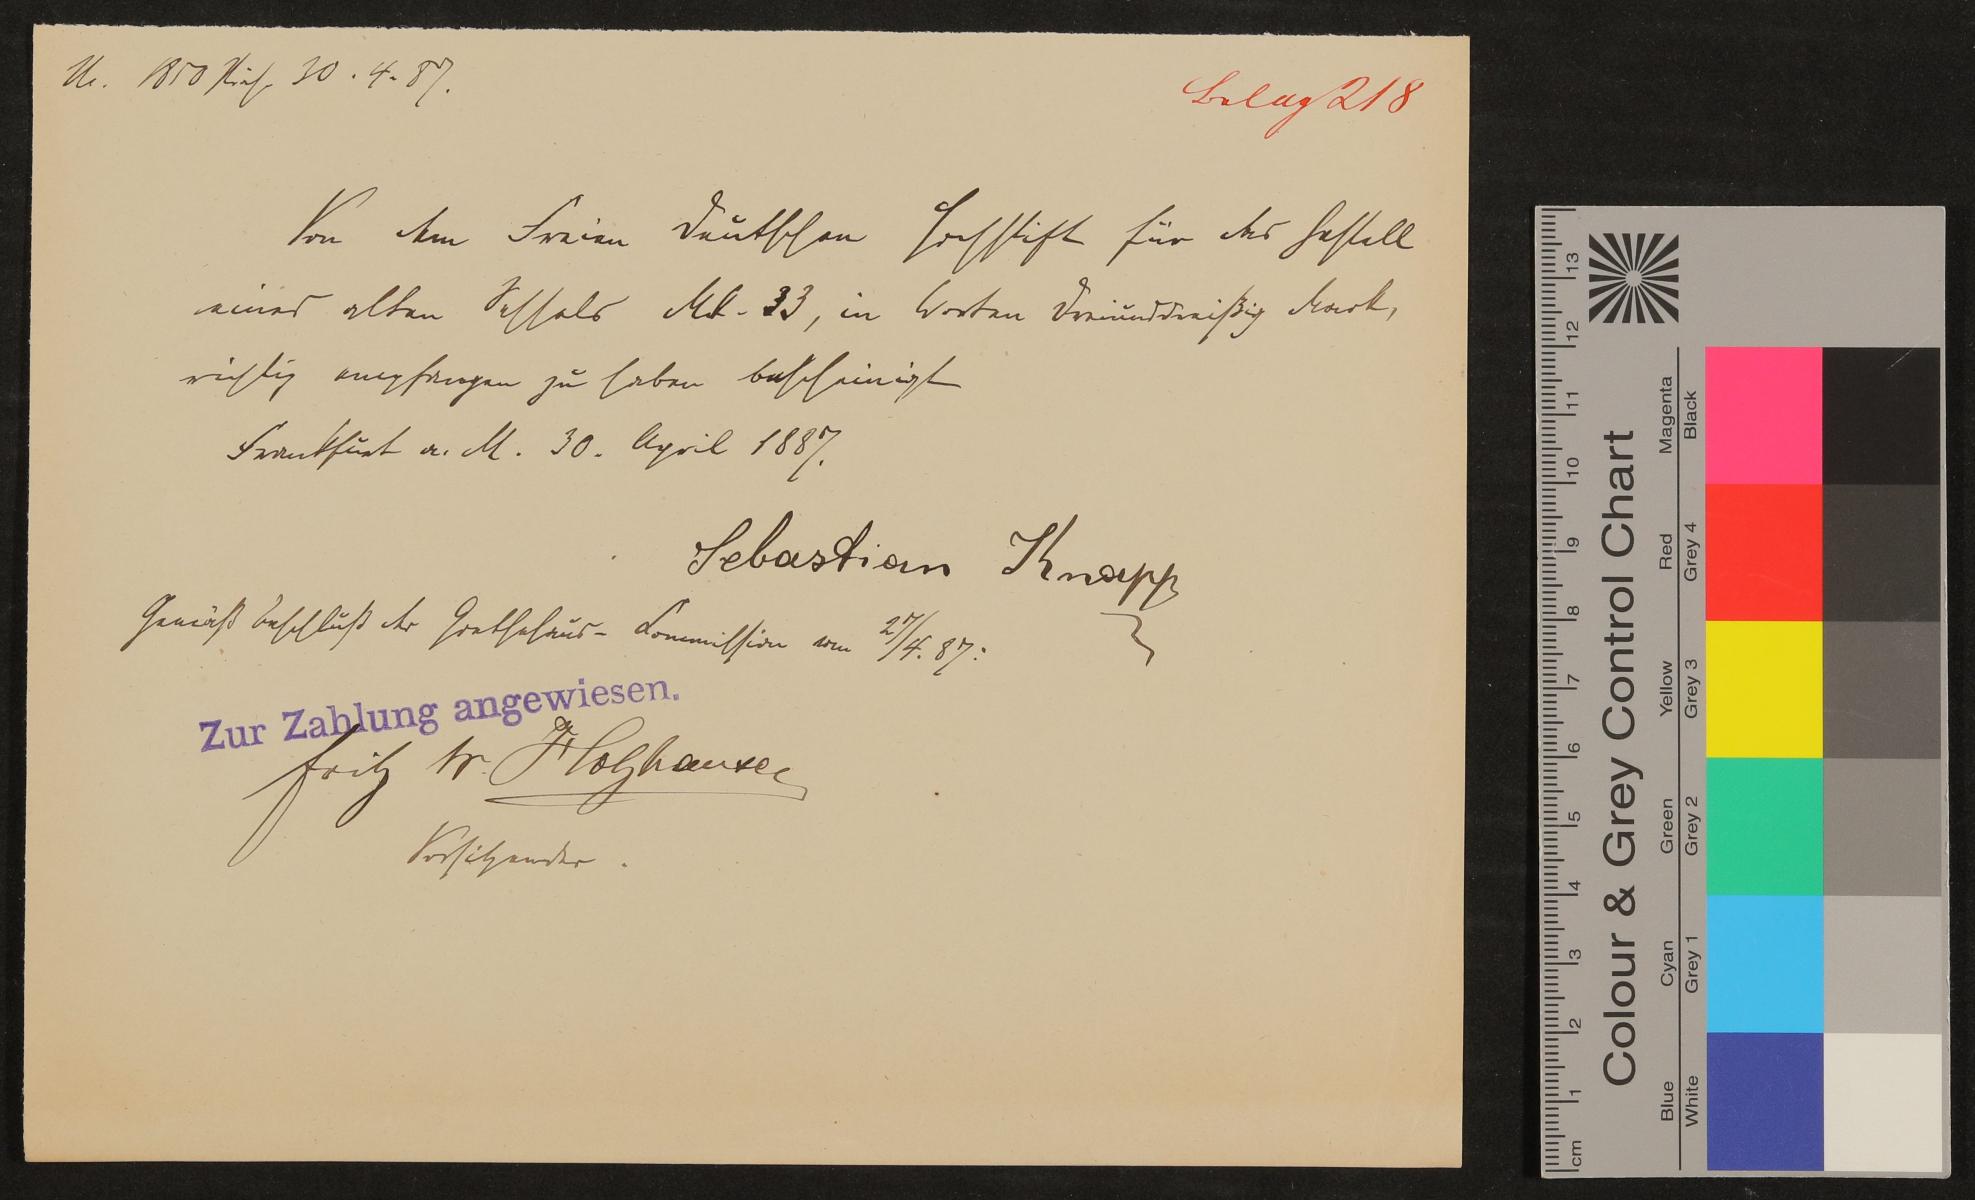 Nr. 1850 30. 4. 87.
Belag 218
Von dem Freien Deutschen Hochstift für das Gestell
eines alten Sessels Mk. 33, in Worten Dreiunddreißig Mark,
richtig empfangen zu haben bescheinigt
Frankfurt a. M. 30. April 1887.
Sebastian Knapp
Gemäß Beschluß der Goethehaus-Commission vom 27/4. 87:
Zur Zahlung angewiesen.
Fritz v. Holzhausen
Vorsitzender.
Colour & Grey Control Chart
Magenta Red Yellow Green Cyan Blue
Black Grey 4 Grey 3 Grey 2 Grey 1 White
13 12 11 10 9 8 7 6 5 4 3 2 1 cm